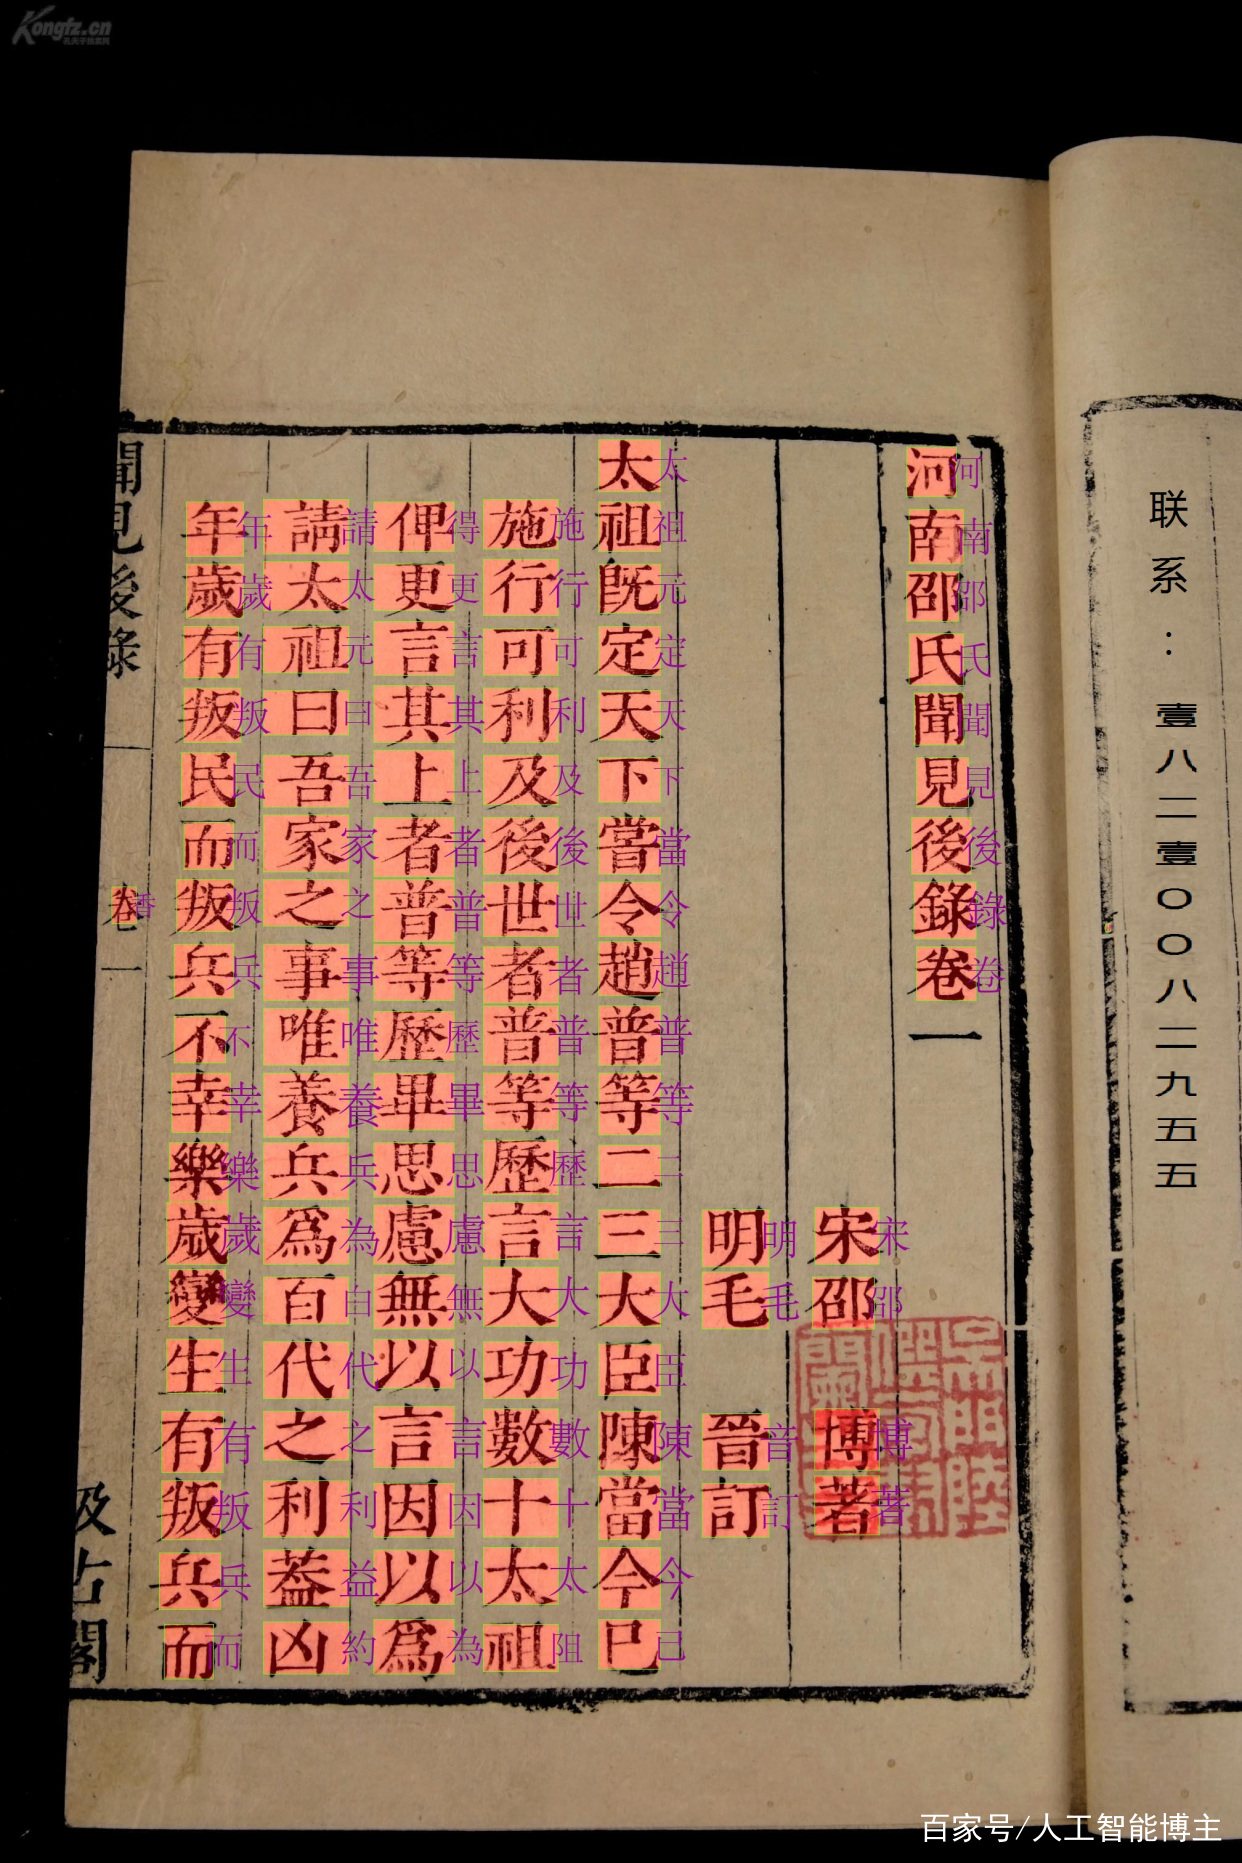 Kongfz.cn
联系：壹八二壹〇〇八二九五五
河南邵氏聞見後錄卷一
宋邵博著
明毛晉訂
太祖旣定天下嘗令趙普等二三大臣陳當今已
施行可利及後世者普等歷言大功數十太祖
俾更言其上者普等歷畢思慮無以言因以爲
請太祖曰吾家之事唯養兵爲百代之利葢凶
年歲有叛民而叛兵不幸樂歲變生有叛兵而
聞見後錄 卷一 汲古閣
百家号/人工智能博主